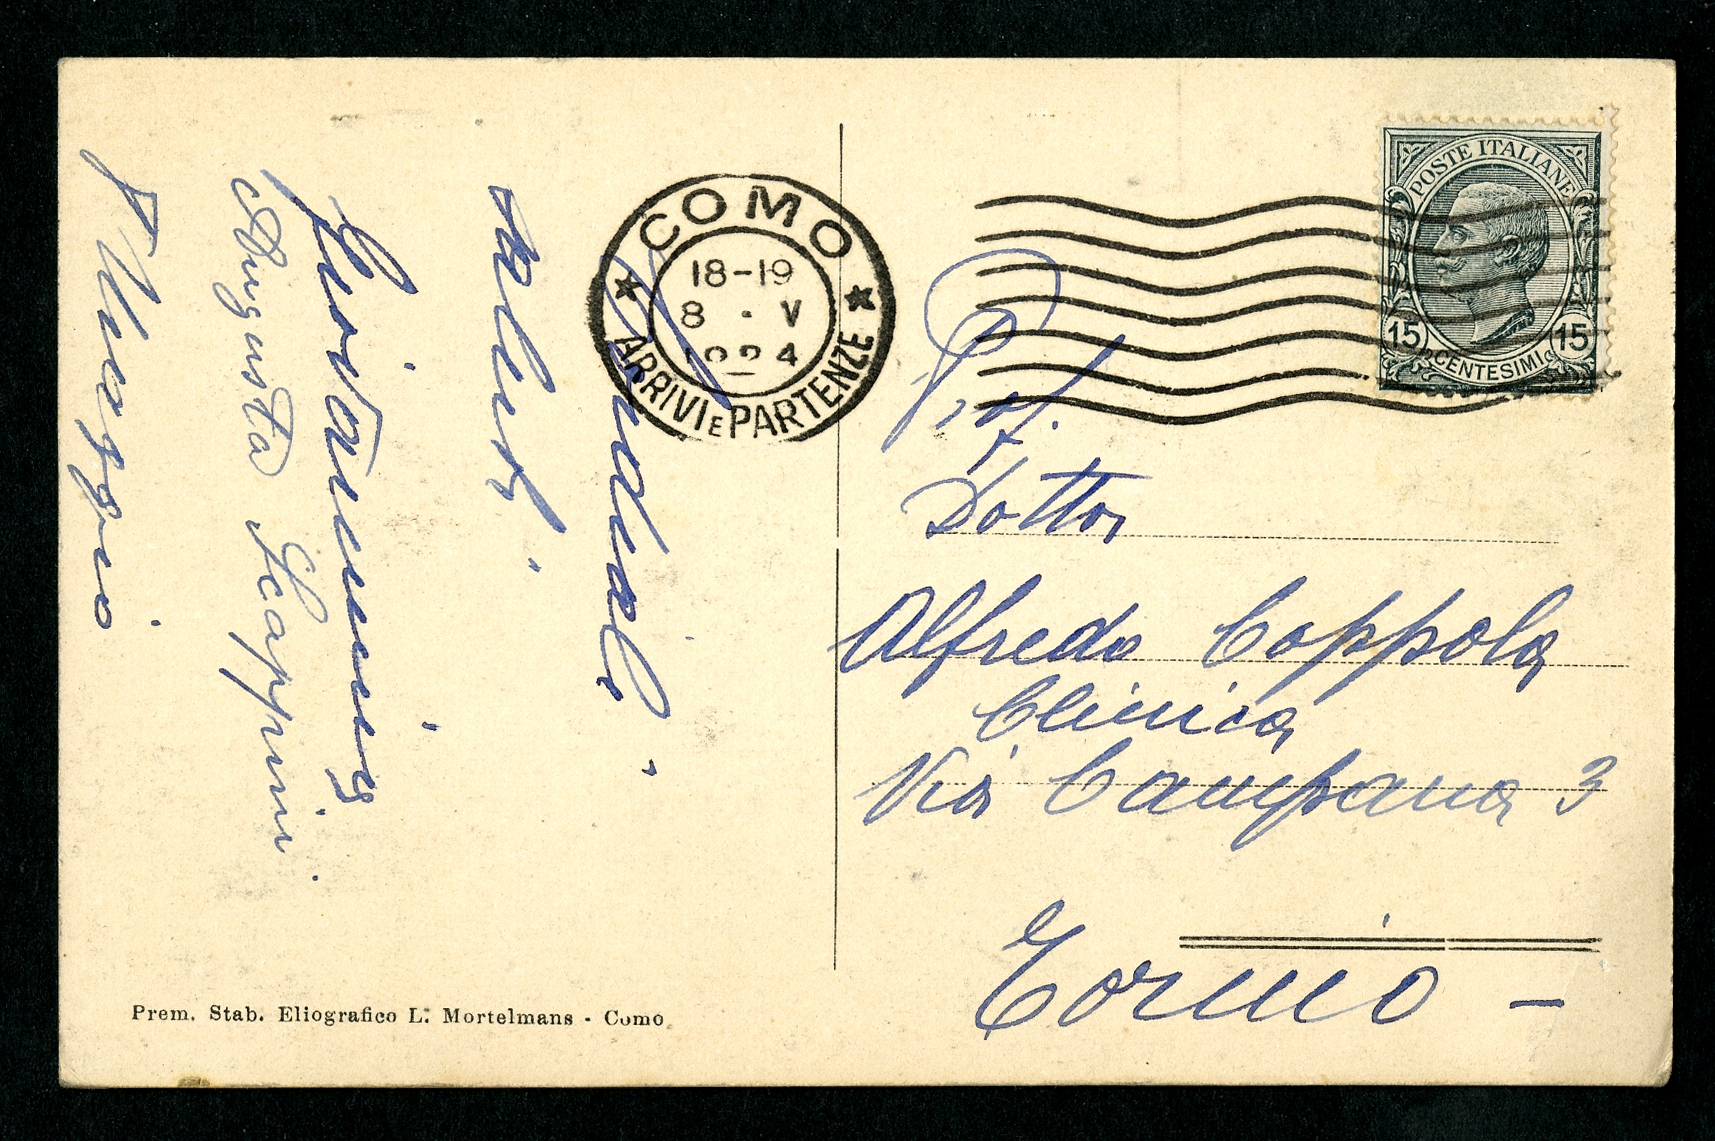 Cordiali
saluti.
Giovannini
Augusta Scappini.
8 Maggio
COMO
18-19
8 · V
1924
ARRIVI E PARTENZE
POSTE ITALIANE
15 CENTESIMI 15
Prof.
Dottor
Alfredo Coppola
Clinica
Via Campana 3
Torino -
Prem. Stab. Eliografico L. Mortelmans - Como